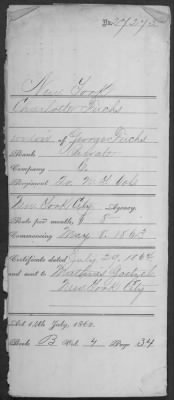 New York
Charlotte Fuchs
widow of George Fuchs
Rank Private
Company
Regiment 20. N.Y. Vols
New York City Agency.
Rate per month, $8
Commencing May 8. 1863
Certificate dated July 29. 1864
and sent to
New York City
Act 14th July, 1862.
Book B Vol. 4 Page 34